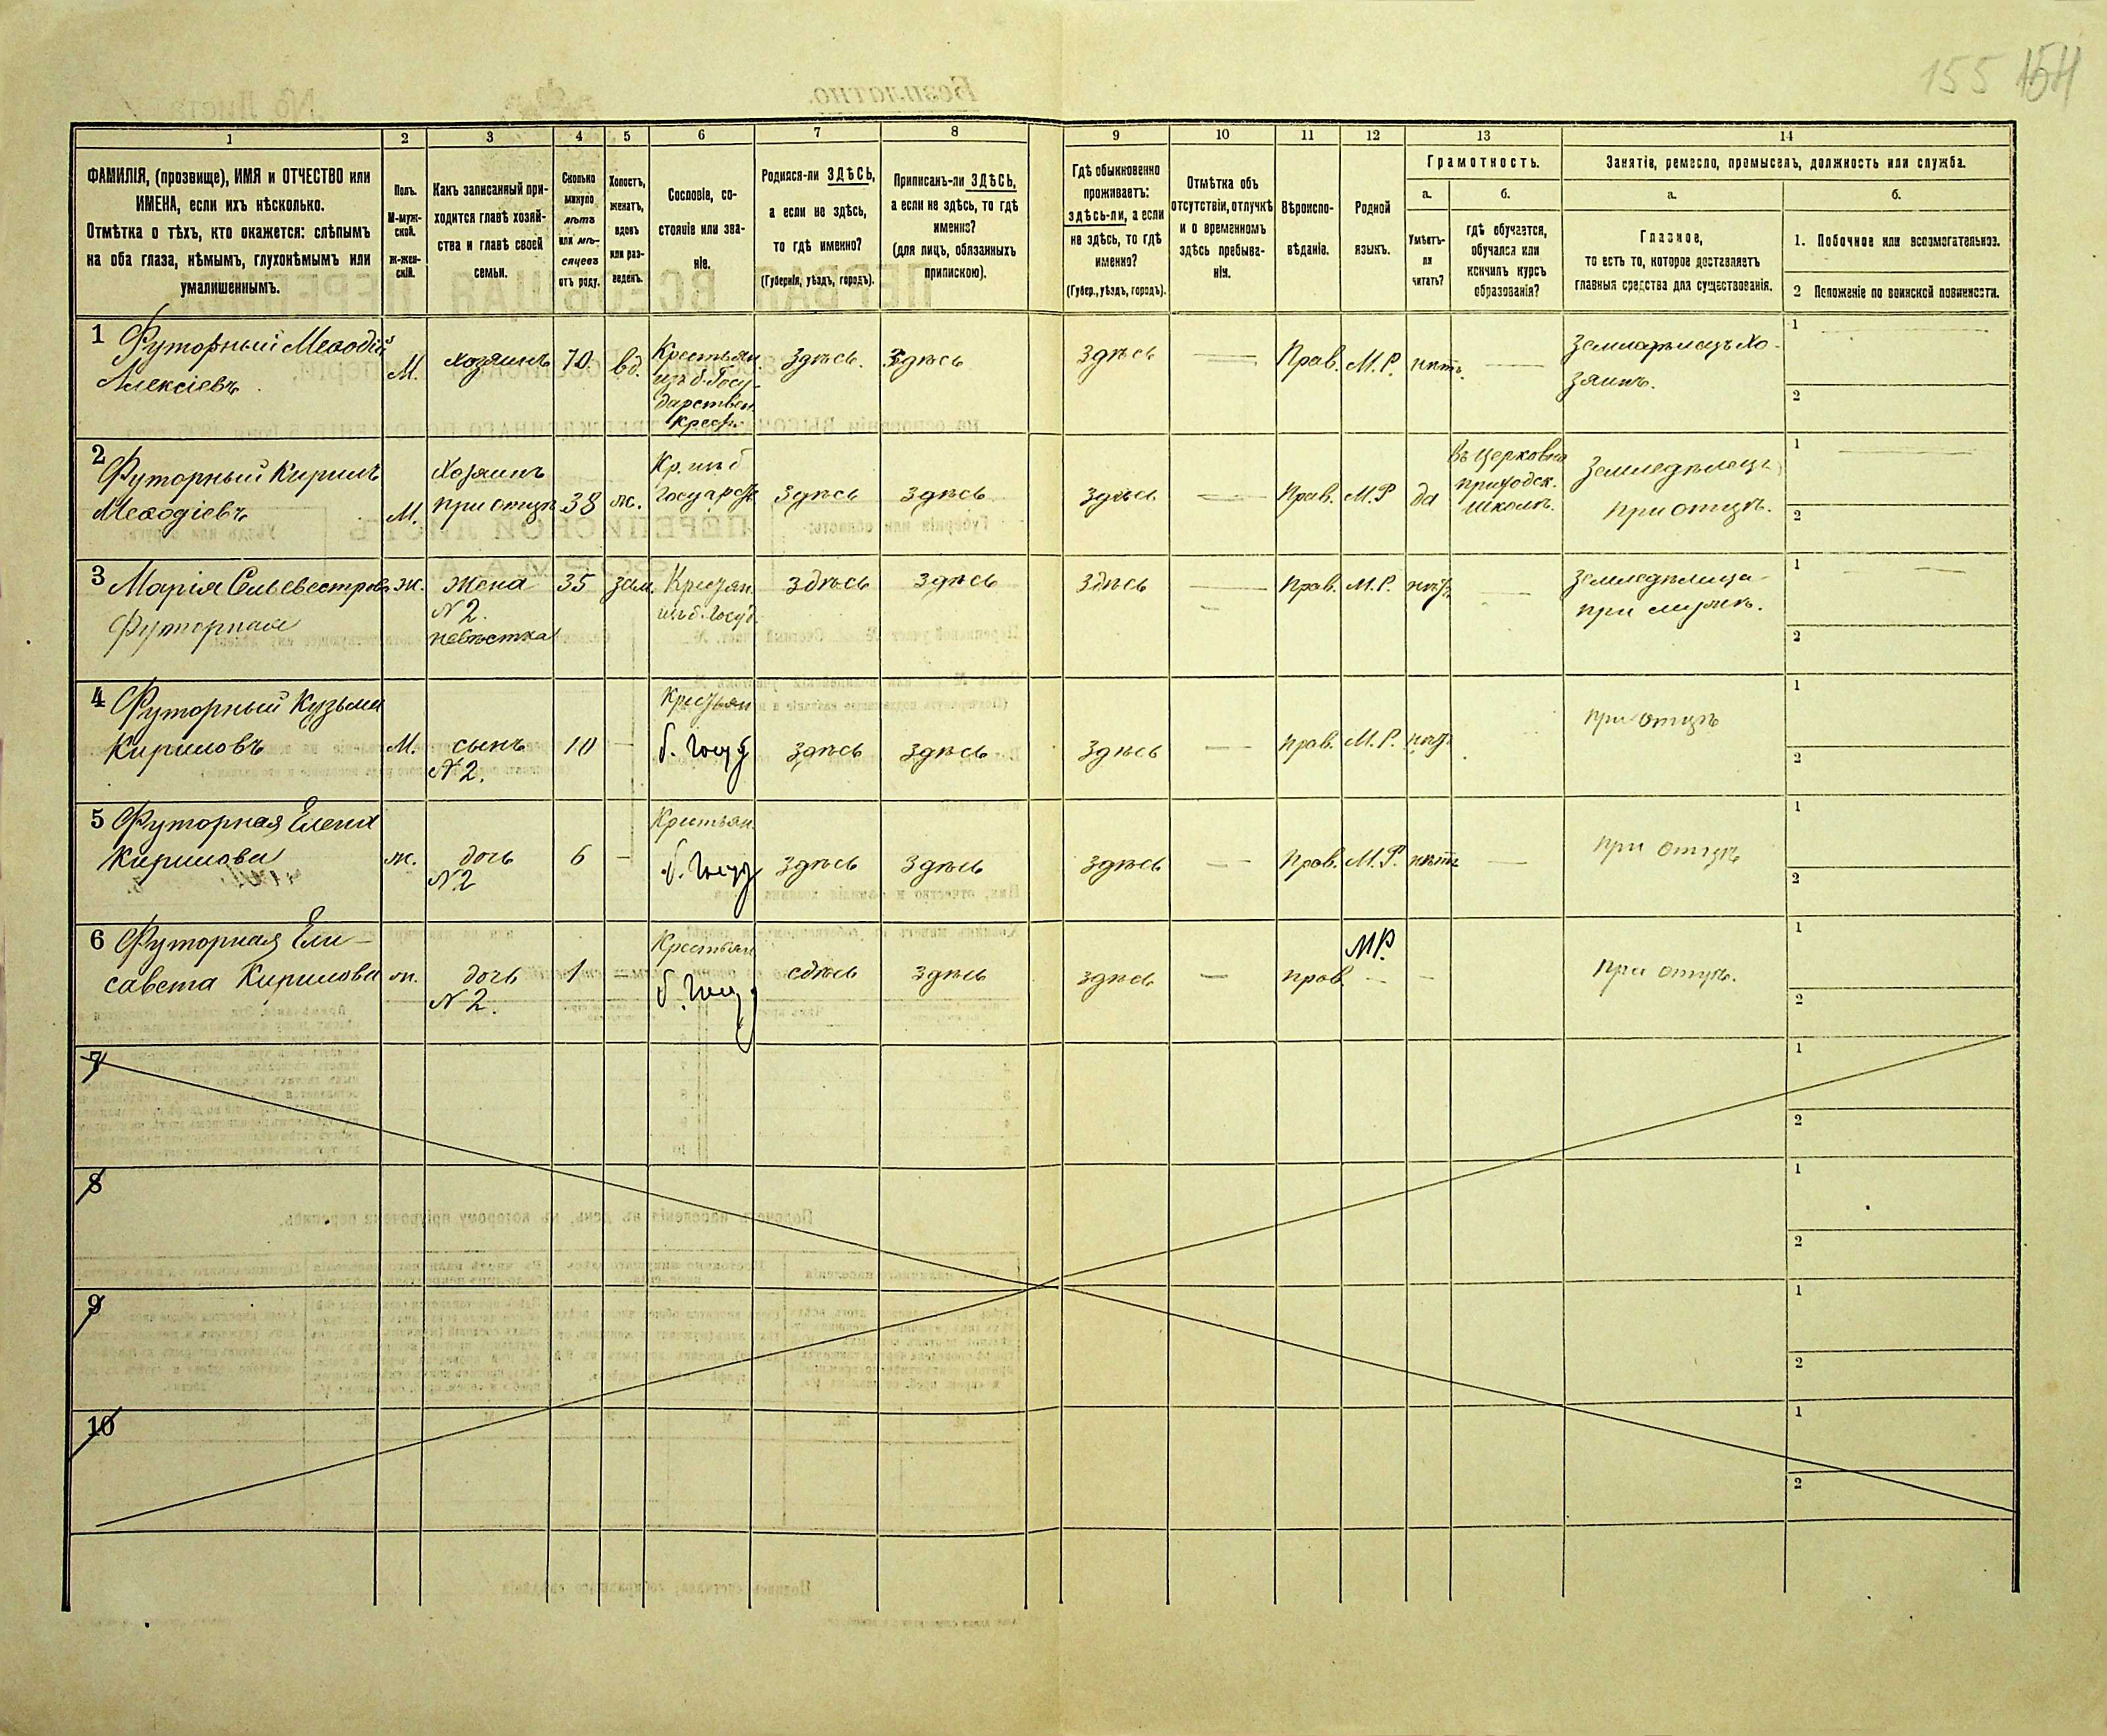 155 154
1 2 3 4 5 6 7 8 9 10 11 12 13 14
ФАМИЛІЯ, (прозвище), ИМЯ и ОТЧЕСТВО или
ИМЕНА, если ихъ нѣсколько.
Отмѣтка о тѣхъ, кто окажется: слѣпымъ
на оба глаза, нѣмымъ, глухонѣмымъ или
умалишеннымъ.
Полъ.
М-муж-
ской.
Ж-жен-
скій.
Какъ записанный при-
ходится главѣ хозяй-
ства и главѣ своей
семьи.
Сколько
минуло
лѣтъ
или мѣ-
сяцевъ
отъ роду.
Холостъ,
женатъ,
вдовъ
или раз-
веденъ.
Сословіе, со-
стояніе или зва-
ніе.
Родился-ли ЗДѢСЬ,
а если не здѣсь,
то гдѣ именно?
(Губернія, уѣздъ, городъ).
Приписанъ-ли ЗДѢСЬ,
а если не здѣсь, то гдѣ
именно?
(для лицъ, обязанныхъ
припискою).
Гдѣ обыкновенно
проживаетъ:
здѣсь-ли, а если
не здѣсь, то гдѣ
именно?
(Губер., уѣздъ, городъ).
Отмѣтка объ
отсутствіи, отлучкѣ
и о временномъ
здѣсь пребыва-
ніи.
Вѣроиспо-
вѣданіе.
Родной
языкъ.
Грамотность.
а.
Умѣетъ-
ли
читать?
б.
гдѣ обучается,
обучался или
кончилъ курсъ
образованія?
Занятіе, ремесло, промыселъ, должность или служба.
а.
Главное,
то есть то, которое доставляетъ
главныя средства для существованія.
б.
1. Побочное или вспомогательное.
2 Положеніе по воинской повинности.
1 Футорный Меѳодій
Алексіевъ
М.
хозяинъ
70
вд.
Крестьян.
изъ б. Госу-
дарствен.
крест.
Здѣсь.
Здѣсь
Здѣсь
Прав.
М. Р.
нѣтъ.
Земледѣлецъ Хо-
зяинъ.
1
2
2 Футорный Кирилъ
Меѳодіевъ
М.
Хозяинъ
при отцѣ
38
ж.
Кр. изъ б
Государс
Здѣсь
Здѣсь
Здѣсь
Прав.
М. Р
да
Въ церковно
приходск.
школѣ.
Земледѣлецъ
при отцѣ.
1
2
3 Марія Сельвестрова
Футорная
ж.
Жена
№ 2.
невѣстка
35
зам.
Крестьян.
изъ б. Госуд.
здѣсь
здѣсь
здѣсь
Прав.
М. Р.
нѣтъ
Земледѣлица
при мужѣ.
1
2
4 Футорный Кузьма
Кириловъ
М.
сынъ
№ 2.
10
Крестьян
б. Госуд
здѣсь
здѣсь
здѣсь
прав.
М. Р.
нѣтъ
при отцѣ
1
2
5 Футорная Елена
Кирилова
ж.
дочь
№ 2
6
Крестьян.
б. Госуд
здѣсь
здѣсь
здѣсь
Прав.
М. Р.
нѣтъ
при отцѣ
1
2
6 Футорная Ели-
савета Кирилова
ж.
дочь
№ 2.
1
Крестьян
б. Госуд
сдѣсь
здѣсь
здѣсь
прав.
МР.
при отцѣ.
1
2
7
1
2
8
1
2
9
1
2
10
1
2